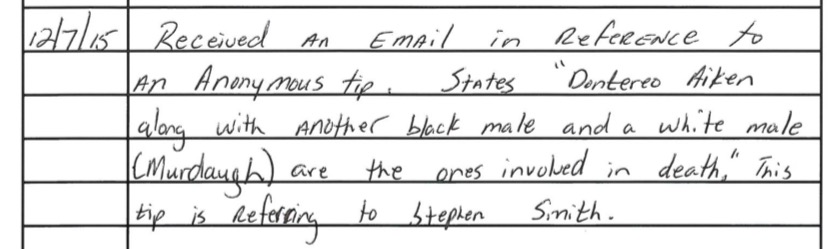 12/7/15 Received An Email in Reference to
An Anonymous tip. States "Dontereo Aiken
along with Another black male and a white male
(Murdaugh) are the ones involved in death." This
tip is Referring to Stephen Smith.